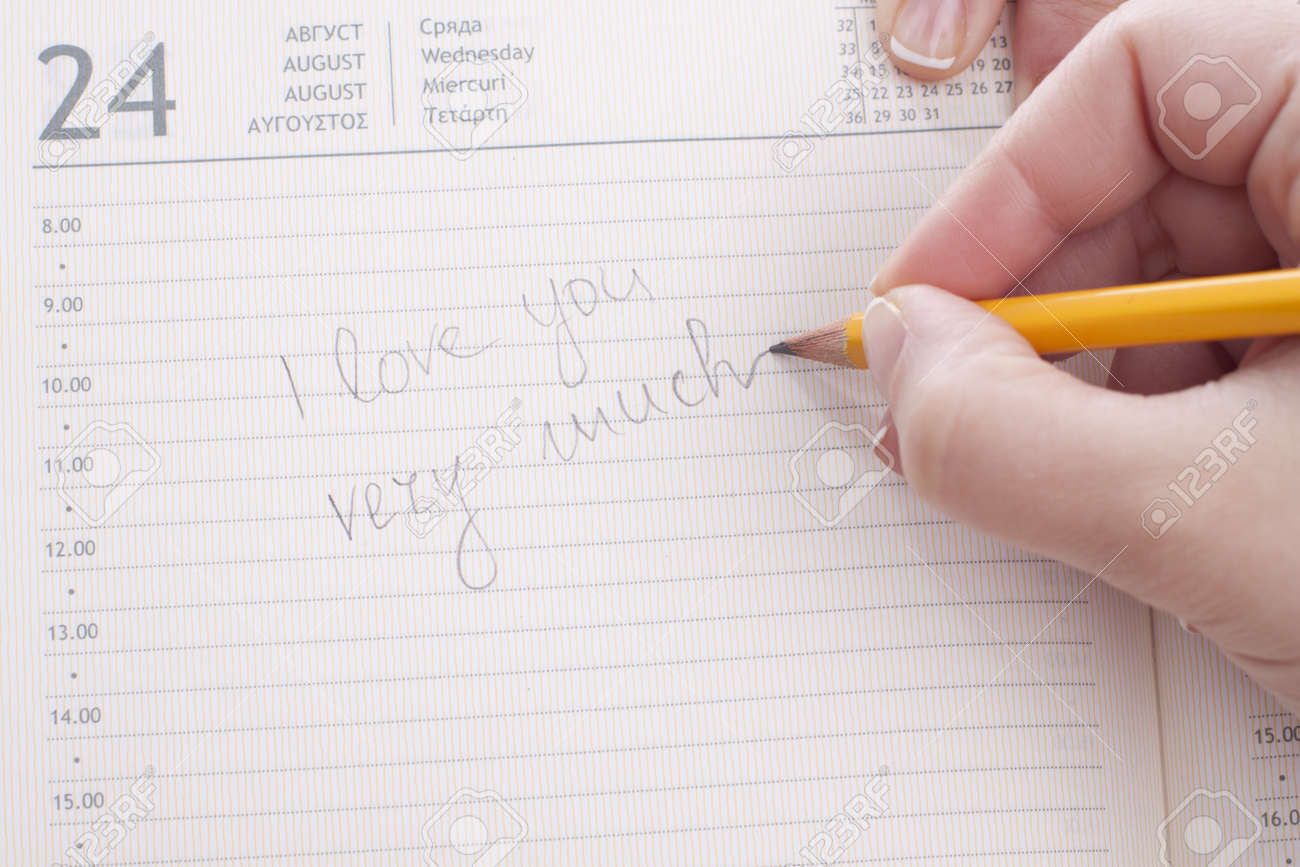 24
АВГУСТ
AUGUST
AUGUST
ΑΥΓΟΥΣΤΟΣ
Сряда
Wednesday
Miercuri
Τετάρτη
32 1
33 8 13
34 15 19 20
35 22 23 24 25 26 27
36 29 30 31
8.00
9.00
10.00
11.00
12.00
13.00
14.00
15.00
I love you
very much
15.00
16.0
123RF